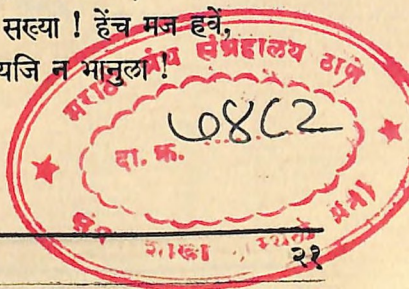 सख्या ! हेंच मज हवें,
यजि न भानुला !
मराठी ग्रंथ संग्रहालय ठाणे
दा. क्र. ७४८२
शाखा
२१